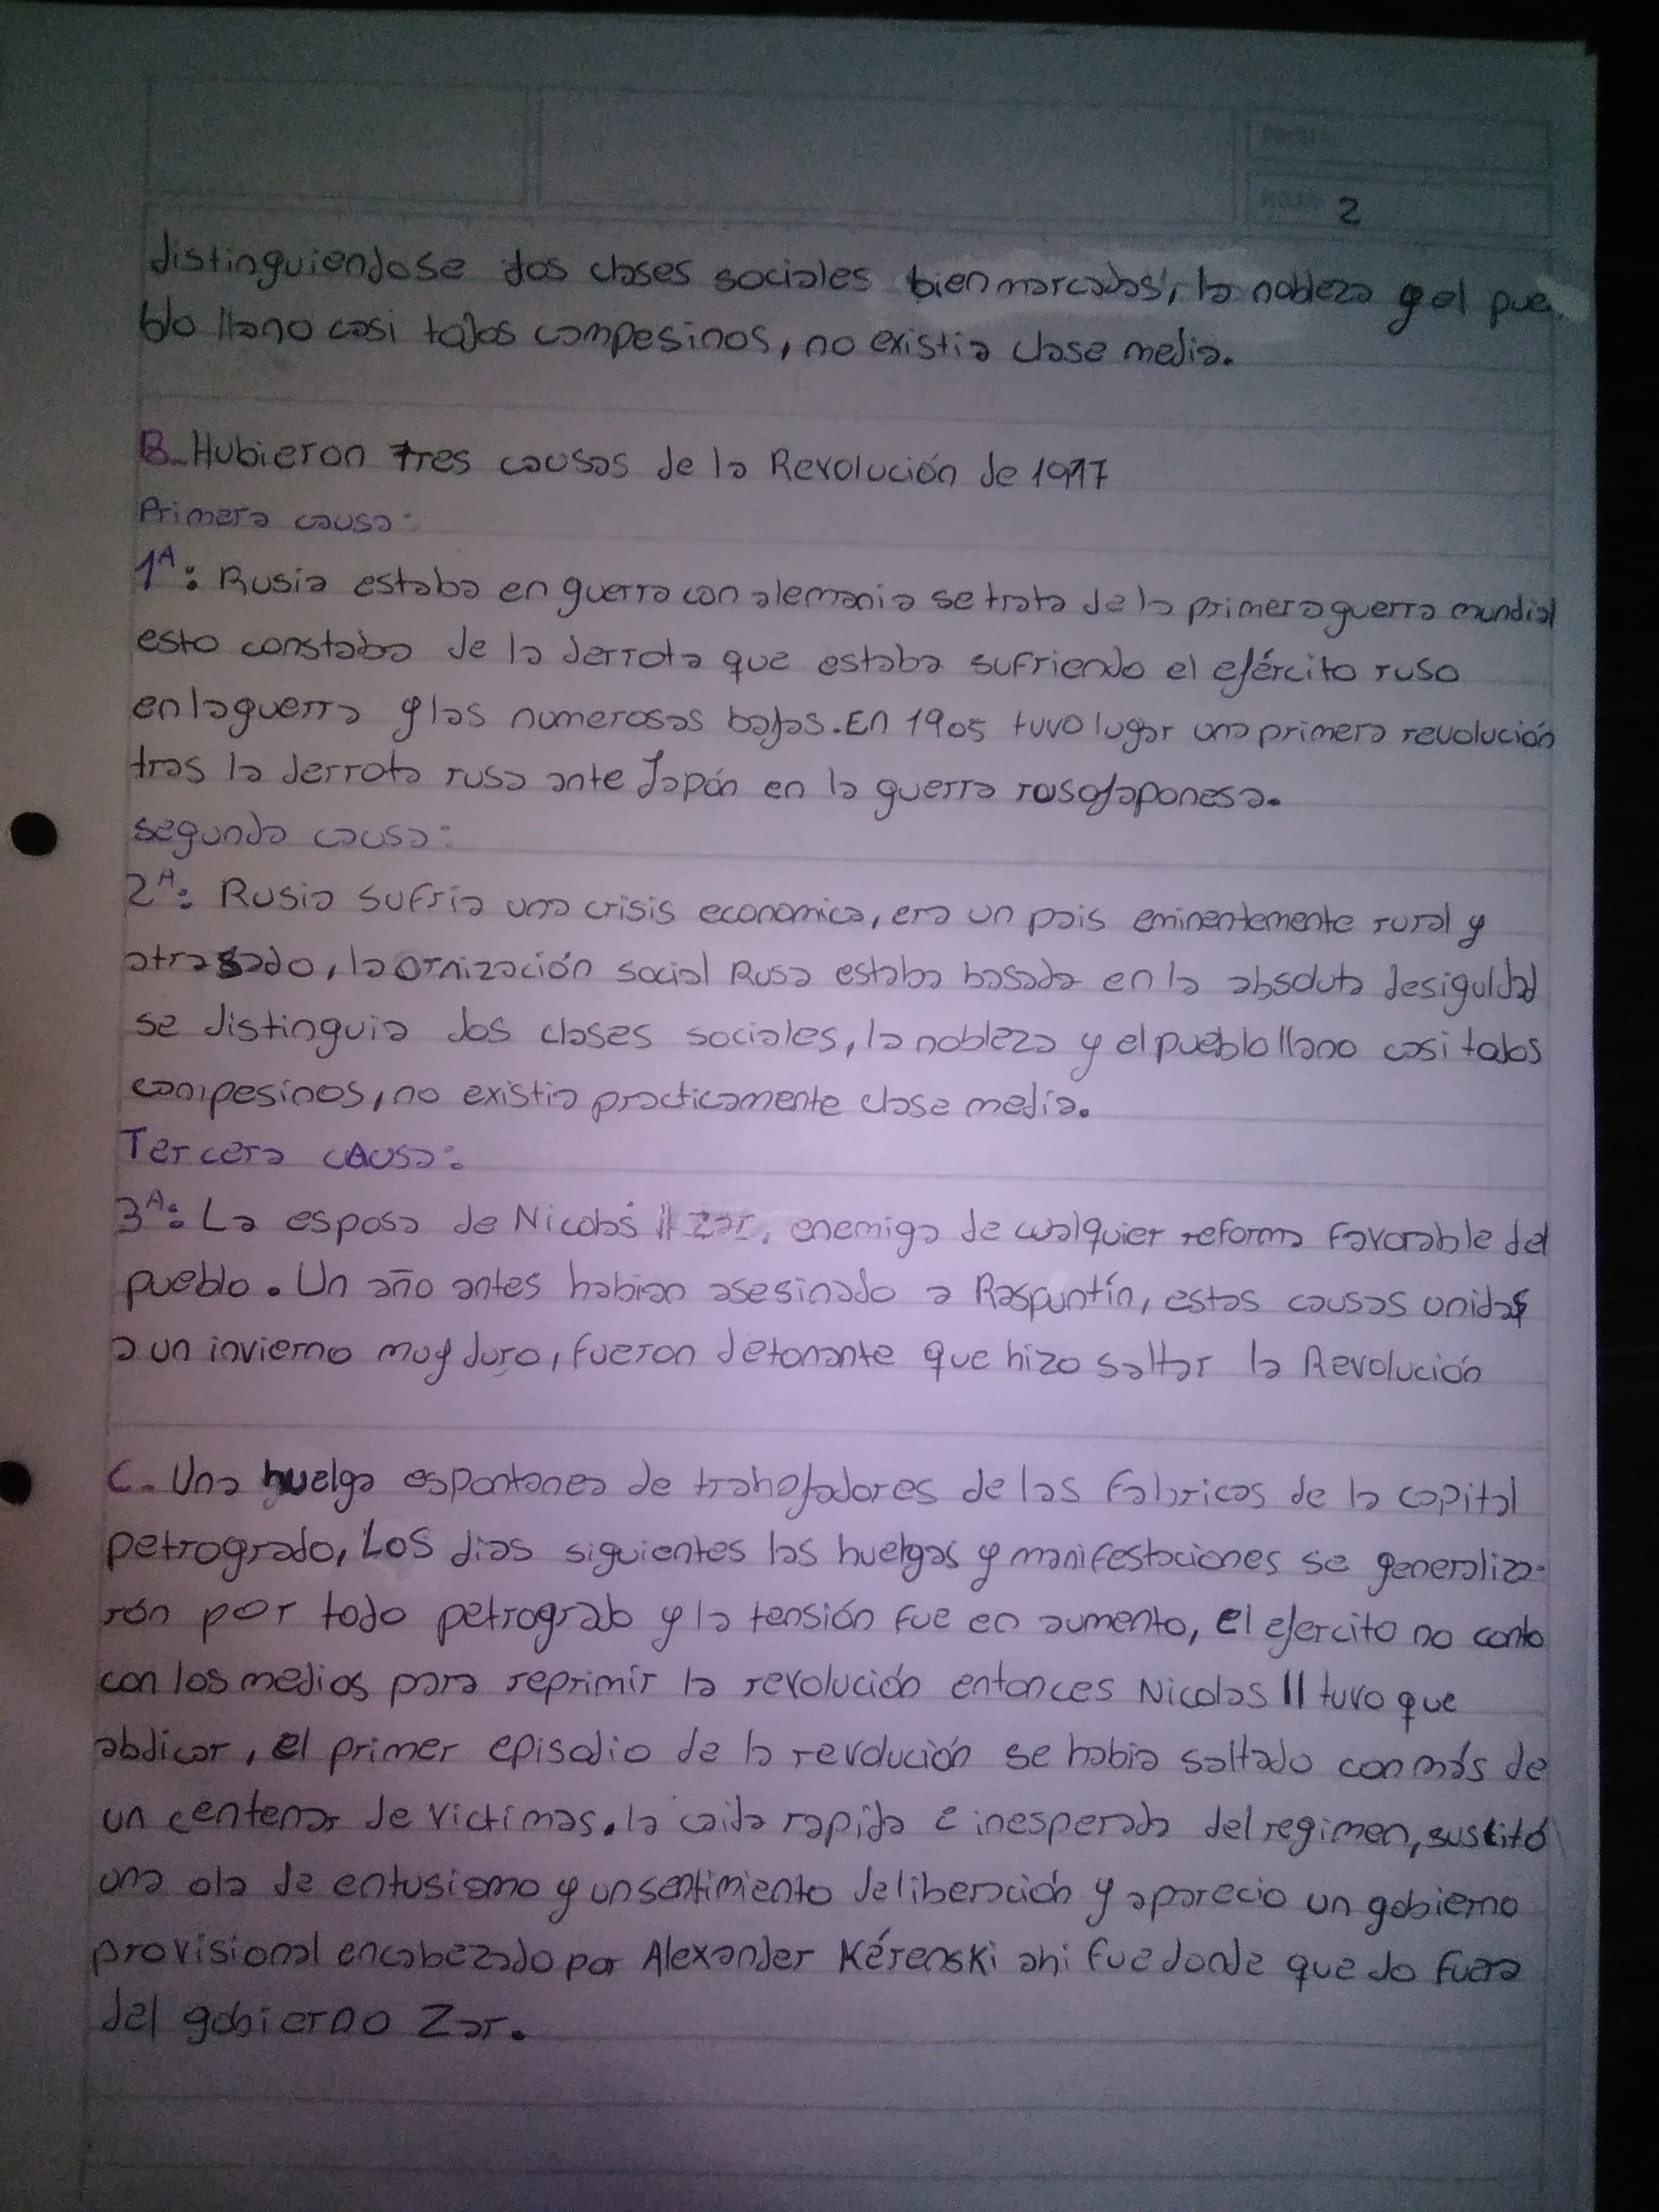 2
distinguiendose dos clases sociales bien marcadas, la nobleza y el pue
blo llano casi todos campesinos, no existia clase media.
B. Hubieron tres causas de la Revolución de 1917
Primera causa:
1ª: Rusia estaba en guerra con alemania se trata de la primera guerra mundial
esto constaba de la derrota que estaba sufriendo el ejército ruso
en la guerra y las numerosas bajas. En 1905 tuvo lugar una primera revolución
tras la derrota rusa ante Japón en la guerra rusojaponesa.
segunda causa:
2ª: Rusia sufria una crisis economica, era un pais eminentemente rural y
atrasado, la ornización social Rusa estaba basada en la absoluta desiguldad
se distinguia dos clases sociales, la nobleza y el pueblo llano casi todos
campesinos, no existia practicamente clase media.
Tercera causa:
3ª: La esposa de Nicolás II zar, enemiga de cualquier reforma favorable del
pueblo. Un año antes habian asesinado a Raspuntín, estas causas unidas
a un invierno muy duro, fueron detonante que hizo saltar la Revolución
C. Una huelga espontanea de trabajadores de las fabricas de la capital
petrogrado, Los dias siguientes las huelgas y manifestaciones se generaliza-
rón por todo petrogrado y la tensión fue en aumento, el ejercito no conto
con los medios para reprimir la revolución entonces Nicolas II tuvo que
abdicar, el primer episodio de la revolución se habia saltado con más de
un centenar de victimas. la caida rapida e inesperada del regimen, sustitó
una ola de entusiasmo y un sentimiento de liberación y aparecio un gobierno
provisional encabezado por Alexander Kérenski ahi fue donde que do fuera
del gobierno Zar.